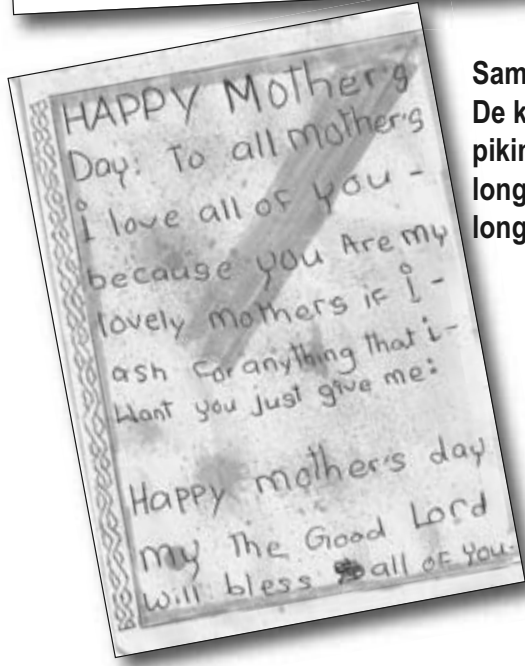 HAPPY Mother's
Day: To all mother's
i love all of you -
because you Are my
lovely mothers if i -
ash for anything that i -
Want you just give me:
Happy mother's day
my The Good Lord
will bless all of you.
Sam
De k
pikin
long
long